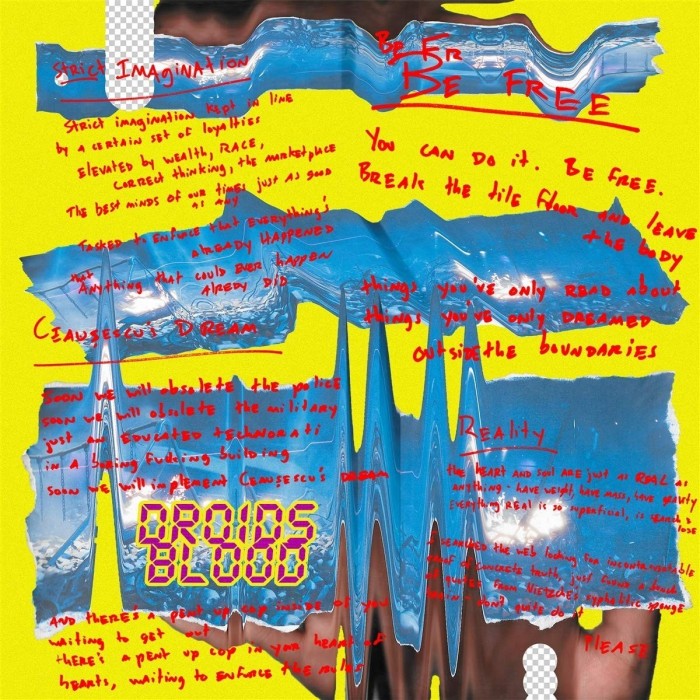 Strict IMAgiNATION
Strict imagination kept in line
by a certain set of loyalties
Elevated by wealth, RACE,
correct thinking, the marketplace
The best minds of our times just as good
as any
Tasked to enforce that everything's
already HAppened
that
Anything that could ever happen
Alredy did
CEAUȘESCU'S DREAM
Soon we will obsolete the police
soon we will obsolete the military
just an educated technorati
in a boring fucking building
soon we will implement Ceaușescu's DREAM
DROIDS
BLOOD
And there's a pent up cop inside of you
waiting to get out
there's a pent up cop in your heart of
hearts, waiting to enforce the rules
BE FR
BE FREE
You can do it. Be free.
Break the tile floor and leave
the body
things you've only READ about
things you've only DREAMED
outside the boundaries
Reality
the HEART AND soul ARE just as REAL as
anything - have weight, have mass, have gravity
Everything REAL is so superficial, is search &
lose
I searched the web looking for incontrovertable
proof of concrete truth, just found a bunch
of quotes from Nietzche's syphellitic sponge
brain don't quite do it
PLEASE